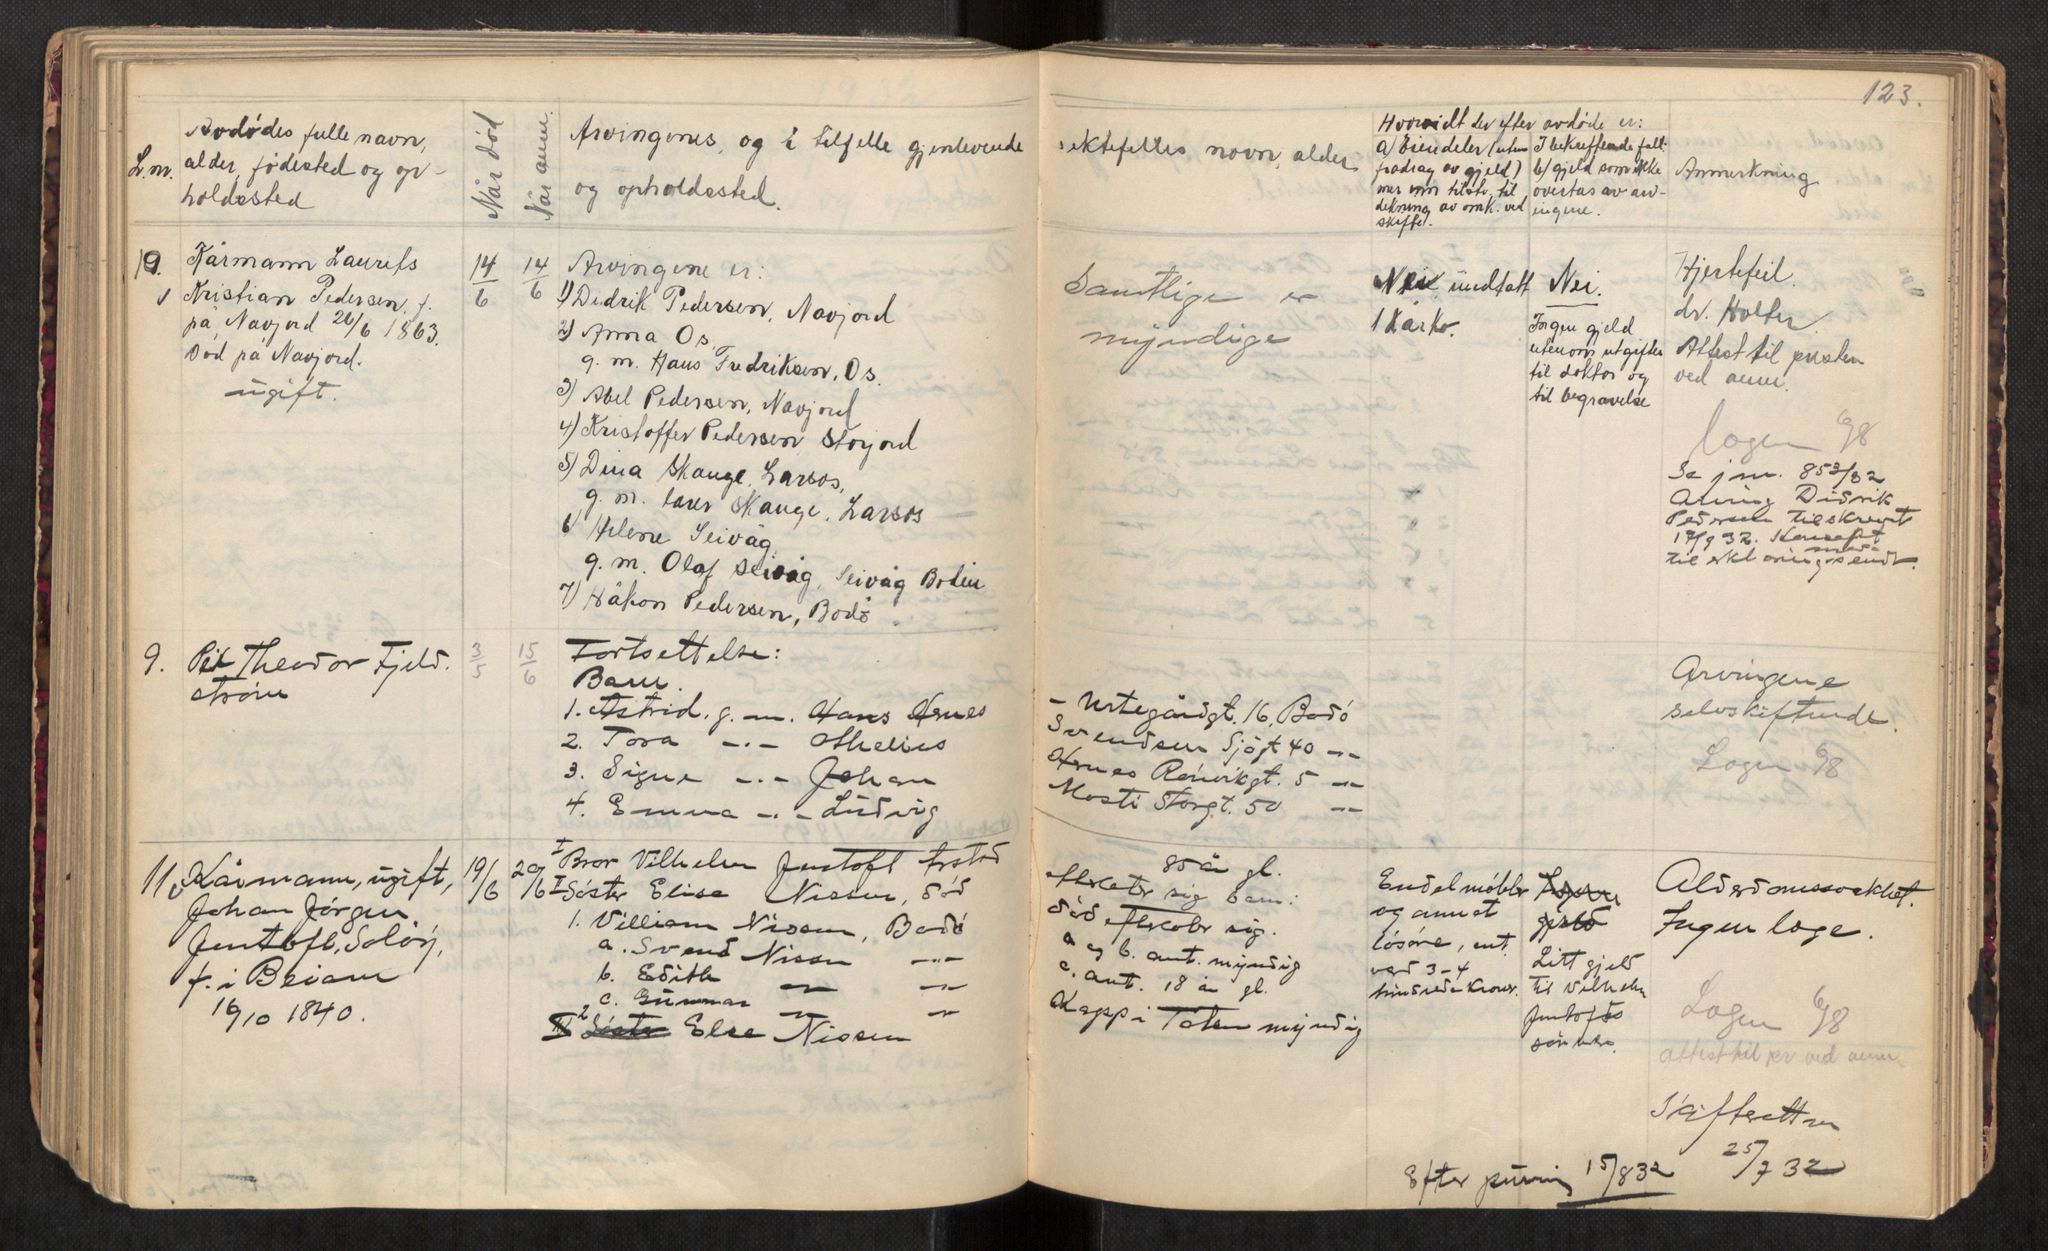 123.
L.nr.
Avdødes fulle navn,
alder, fødested og op-
holdssted
Når død
Når anm.
Arvingenes, og i tilfelle gjenlevende
ektefelles navn, alder
og opholdssted.
Hvorvidt der efter avdøde er:
a) Eiendeler (uten
fradrag av gjeld)
mer enn tilstr. til
dekning av omk. ved
skiftet.
I bekreftende fall:
b) gjeld som ikke
overtas av arv-
ingene.
Anmerkning
10.
Kårmann Laurits
Kristian Pedersen, f.
på Navjord 26/6 1863.
Død på Navjord.
ugift.
14/6
14/6
Arvingene er:
1) Didrik Pedersen, Navjord
2) Anna Os,
g. m. Hans Fredriksen, Os.
3) Abel Pedersen, Navjord
4) Kristoffer Pedersen, Storjord
5) Dina Skauge, Larsos,
g. m. Lars Skauge, Larsos
6) Helene Seivåg
g. m. Olaf Seivåg, Seivåg Bodin
7) Håkon Pedersen, Bodø.
Samtlige er
myndige
Nei undtatt
1 kårko.
Nei.
Ingen gjeld
utenom utgifter
til doktor og
til begravelse
Hjertefeil.
dr. Holter.
Attest til presten
ved anm.
Logen 6/8
Se jnr. 853/32
Arving Didrik
Pedersen tilskrevet
17/9 32. Konsept
med
til erklæring sendt.
9.
Peter Theodor Fjeld-
strøm
3/5
15/6
Fortsettelse:
Barn.
1. Astrid. g. m. Hans Hernes
2. Tora -"- Athelius
3. Signe -"- Johan
4. Emma -"- Ludvig
- Urtegårdgt. 16, Bodø
Svendsen Sjøgt 40 -"-
Hernes Rønvikgt. 5 -"-
Mosti Storgt. 50 -"-
Arvingene
selvskiftende.
Logen 6/8
11.
Kårmann, ugift,
Johan Jørgen
Jentoft, Soløy,
f. i Beiarn
16/10 1840.
19/6
20/6
I Bror Vilhelm Jentoft Arstad
II Søster Elise Nissen, død
1. Villiam Nissen, Bodø
a. Svend Nissen -"-
b. Edith -"- -"-
c. Gunnar -"- -"-
2 Søster Else Nissen
85 år gl.
efterlater sig barn:
død efterlater sig.
a og b. ant. myndig
c. ant. 18 år gl.
Kapp i Toten myndig
Endel møbler
og annet
løsøre, ant.
verd 3-4
hundrede kroner.
Ingen
gjeld
Litt gjeld
til Vilhelm
Jentofts
sønner.
Alderdomssvakhet.
Ingen læge.
Logen 6/8
attest til pr ved anm.
Skifteretten
25/7 32
Efter purring 15/8 32